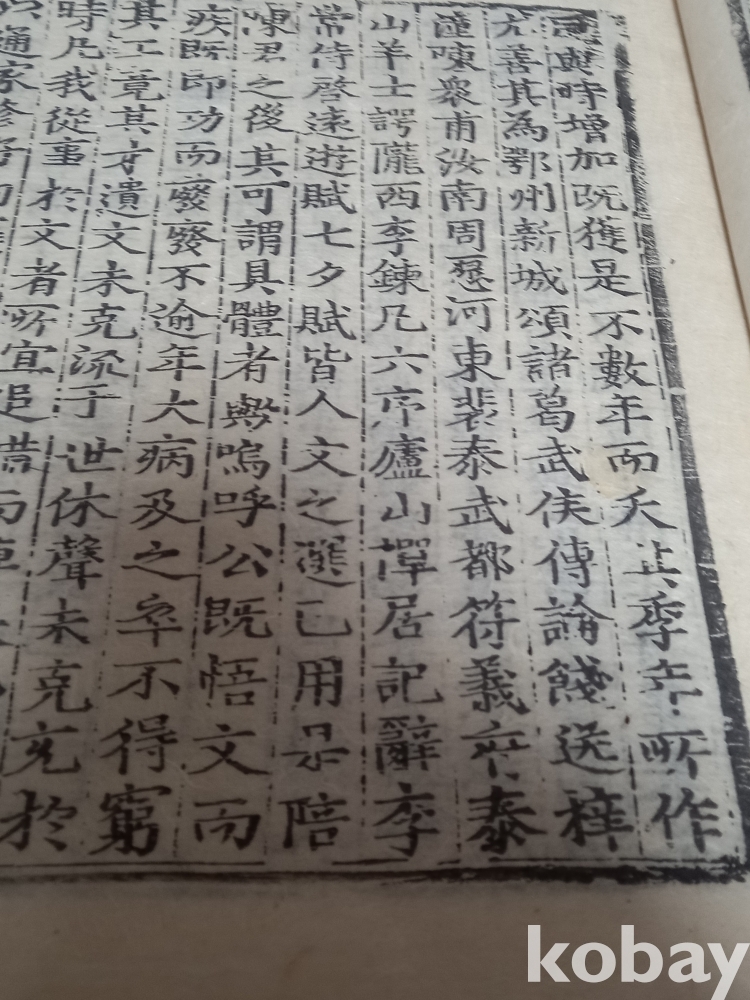 與時增加既獲是不數年而夭其季年所作
尤善其為鄂州新城頌諸葛武侯傳論餞送梓
潼陳衆甫汝南周愿河東裴泰武都符義府泰
山羊士諤隴西李鍊凡六序廬山禪居記辭李
常侍啓遠遊賦七夕賦皆人文之選已用是陪
陳君之後其可謂具體者歟嗚呼公既悟文而
疾既即功而廢廢不逾年大病及之卒不得窮
其工竟其才遺文未克流于世休聲未克充於
時凡我從事於文者所宜追惜而